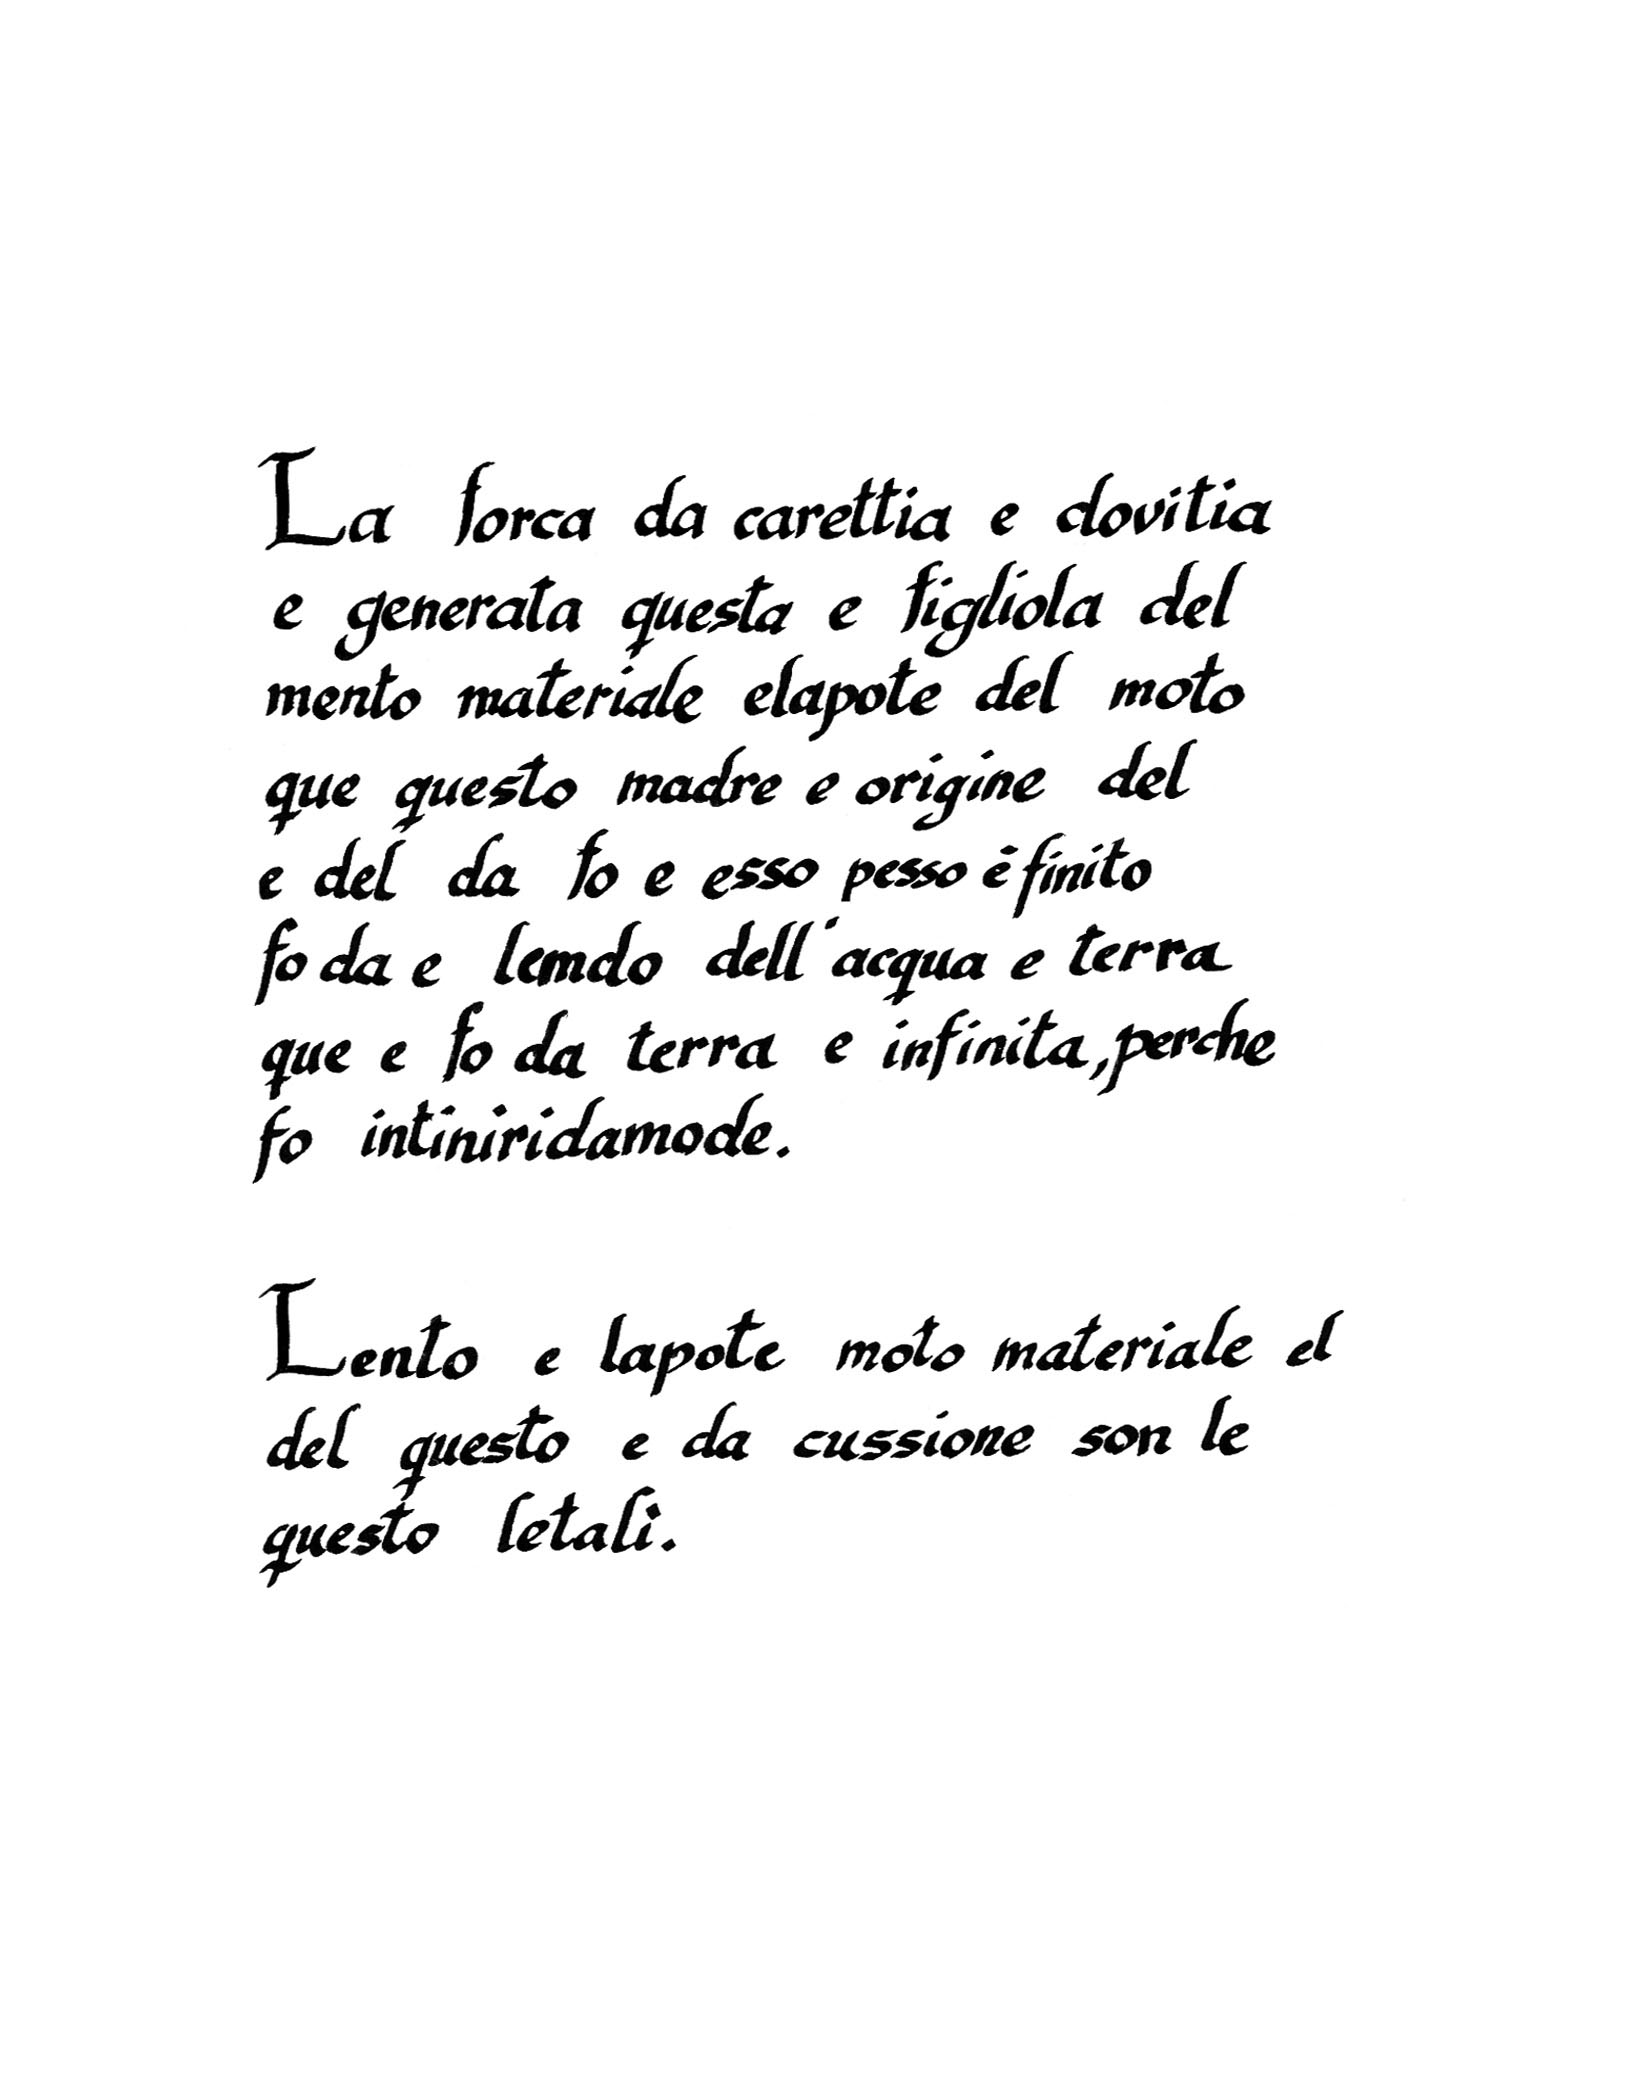 La forca da carettia e dovitia
e generata questa e figliola del
mento materiale elapote del moto
que questo madre e origine del
e del da fo e esso pesso ē finito
fo da e lemdo dell'acqua e terra
que e fo da terra e infinita, perche
fo intiniridamode.
Lento e lapote moto materiale el
del questo e da cussione son le
questo letali.